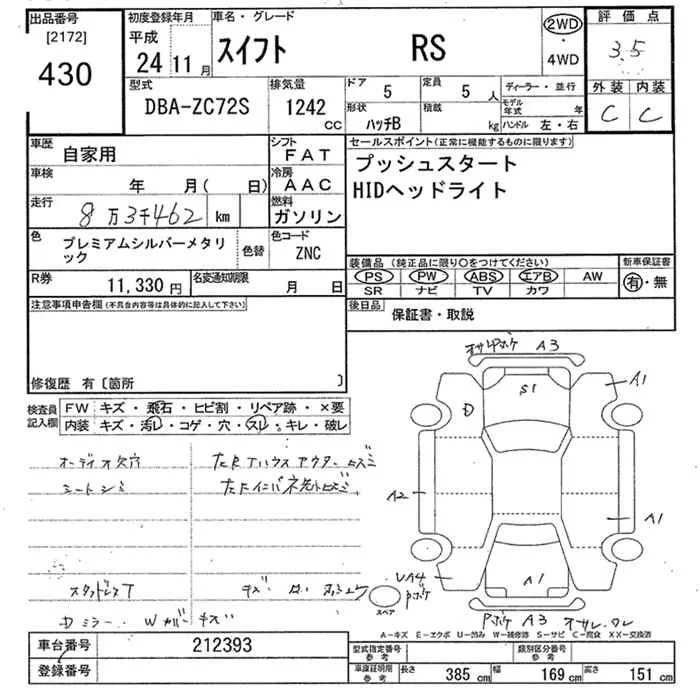 出品番号
[2172]
430
初度登録年月
平成
24 11 月
車名・グレード
スイフト RS
2WD
・
4WD
評価点
3.5
外装 内装
C C
型式
DBA-ZC72S
排気量
1242
CC
ドア 5
定員 5 人
形状
ハッチB
積載 kg
ディーラー・並行
モデル年式 年
ハンドル 左・右
車歴 自家用
シフト
FAT
車検 年 月( 日)
冷房
AAC
走行 8万3千462 km
燃料
ガソリン
色
プレミアムシルバーメタリ
ック
色替
色コード
ZNC
R券 11,330 円
名変通知期限 月 日
セールスポイント(正常に機能するものに限ります)
プッシュスタート
HIDヘッドライト
装備品(純正品に限り○をつけてください)
PS PW ABS エアB AW
SR ナビ TV カワ
新車保証書
有・無
後日品 保証書・取説
注意事項申告欄(不具合内容等は具体的に記入して下さい)
修復歴 有〔箇所 〕
検査員
記入欄
FW キズ・飛石・ヒビ割・リペア跡・×要
内装 キズ・汚レ・コゲ・穴・スレ・キレ・破レ
オーディオ欠穴
シートシミ
スタッドレスT
Dミラー Wカバーキズ
A3
A1
S1
D
A2
A1
A1
UA4
Pボケ
スペア
Pボケ A3
A-キズ E-エクボ U-凹み W-補修跡 S-サビ C-腐食 XX-交換済
車台番号 212393
登録番号
型式指定番号
参考
類別区分番号
参考
車庫証明用
参考
長さ 385 cm 幅 169 cm 高さ 151 cm